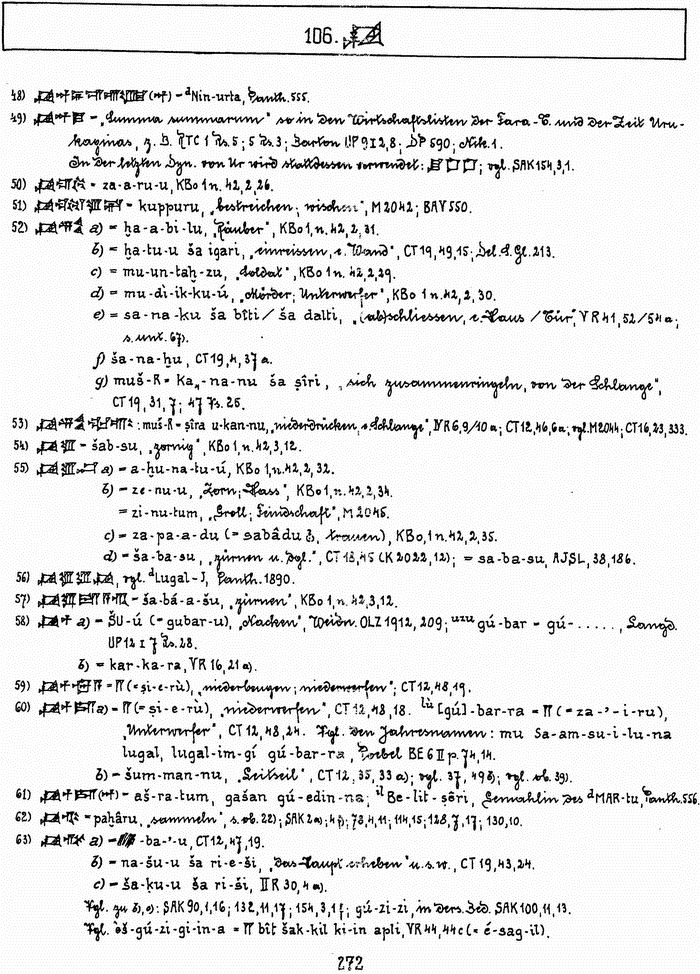 106.
48) (𒀭) = ᵈNin-urta, Panth. 555.
49) = „Summa summarum" so in den Wirtschaftslisten der Fara-T. und der Zeit Uru-
kaginas, z. B. RTC 1 Rs. 5; 5 Rs. 3; Barton UP 9 I 2,8; DP 590; Nik. 1.
In der letzten Dyn. von Ur wird stattdessen verwendet: ; vgl. SAK 154,3,1.
50) = za-a-ru-u, KBo 1 n. 42, 2, 26.
51) = kuppuru, „bestreichen; wischen", M 2042; BAV 550.
52) a) = ḫa-a-bi-lu, „Räuber", KBo 1, n. 42, 2, 31.
b) = ḫa-tu-u ša igari, „einreissen, e. Wand", CT 19, 49, 15; Del. S. Gl. 213.
c) = mu-un-taḫ-zu, „Soldat", KBo 1 n. 42, 2, 29.
d) = mu-dì-ik-ku-ú, „Mörder; Unterwerfer", KBo 1 n. 42, 2, 30.
e) = sa-na-ku ša bîti / ša dalti, „(ab)schliessen, e. Haus / Tür", VR 41, 52/54 a;
s. unt. 67).
f) ša-na-ḫu, CT 19, 4, 37 a.
g) muš-R = ka„-na-nu ša ṣîri, „sich zusammenringeln, von der Schlange",
CT 19, 31, 7; 47 Rs. 25.
53) : muš-R = ṣîra u-kan-nu, „niederdrücken, e. Schlange", IVR 6, 9/10 a; CT 12, 46, 6a; vgl. M 2044; CT 16, 23, 333.
54) = šab-su, „zornig", KBo 1, n. 42, 3, 12.
55) a) = a-ḫu-na-tu-ú, KBo 1, n. 42, 2, 32.
b) = ze-nu-u, „Zorn; Hass", KBo 1, n. 42, 2, 34.
= zi-nu-tum, „Groll; Feindschaft", M 2045.
c) = za-pa-a-du (= sabâdu, trauen), KBo, 1 n. 42, 2, 35.
d) = ša-ba-su, „zürnen u. dgl.", CT 18, 45 (K 2022, 12); = sa-ba-su, AJSL, 38, 186.
56) , vgl. ᵈLugal-J, Panth. 1890.
57) = ša-bá-a-šu, „zürnen", KBo 1, n. 42, 3, 12.
58) a) = ŠU-ú (= gubar-u), „Nacken", Weidn. OLZ 1912, 209; ᵘᶻᵘ gú-bar = gú-....., Langd.
UP 12 I 7 Rs. 28.
b) = kar-ka-ra, VR 16, 21 a).
59) = (= ṣi-e-rù), „niederbeugen; niederwerfen"; CT 12, 48, 19.
60) a) = (= ṣi-e-rù), „niederwerfen", CT 12, 48, 18. ˡᵘ̀ [gú]-bar-ra = (= za-'-i-ru),
„Unterwerfer", CT 12, 48, 24. Vgl. den Jahresnamen: mu Sa-am-su-i-lu-na
lugal, lugal-im-gí gú-bar-ra, Poebel BE 6 II p. 74, 14.
b) = šum-man-nu, „Leitseil", CT 12, 35, 33 a); vgl. 37, 49 b); vgl. ob. 39).
61) = aš-ra-tum, gašan gú-edin-na; ⁱˡ Be-lit-ṣêri, Gemahlin des ᵈMAR-tu, Panth. 556.
62) = paḫâru, „sammeln", s. ob. 22); SAK 2a); 4 p; 78, 4, 11; 114, 15; 128, 7, 17; 130, 10.
63) a) = -ba-'-u, CT 12, 47, 19.
b) = na-šu-u ša ri-e-ši, „das Haupt erheben" u. s. w., CT 19, 43, 24.
c) = ša-ḳu-u ša ri-ši, IIR 30, 4 a).
Vgl. zu b), c): SAK 90, 1, 16; 132, 11, 17; 154, 3, 1 f; gú-zi-zi, in ders. Bed. SAK 100, 11, 13.
Vgl. èš-gú-zi-gi-in-a = bît šak-kil ki-in apli, VR 44, 44c (= é-sag-il).
272